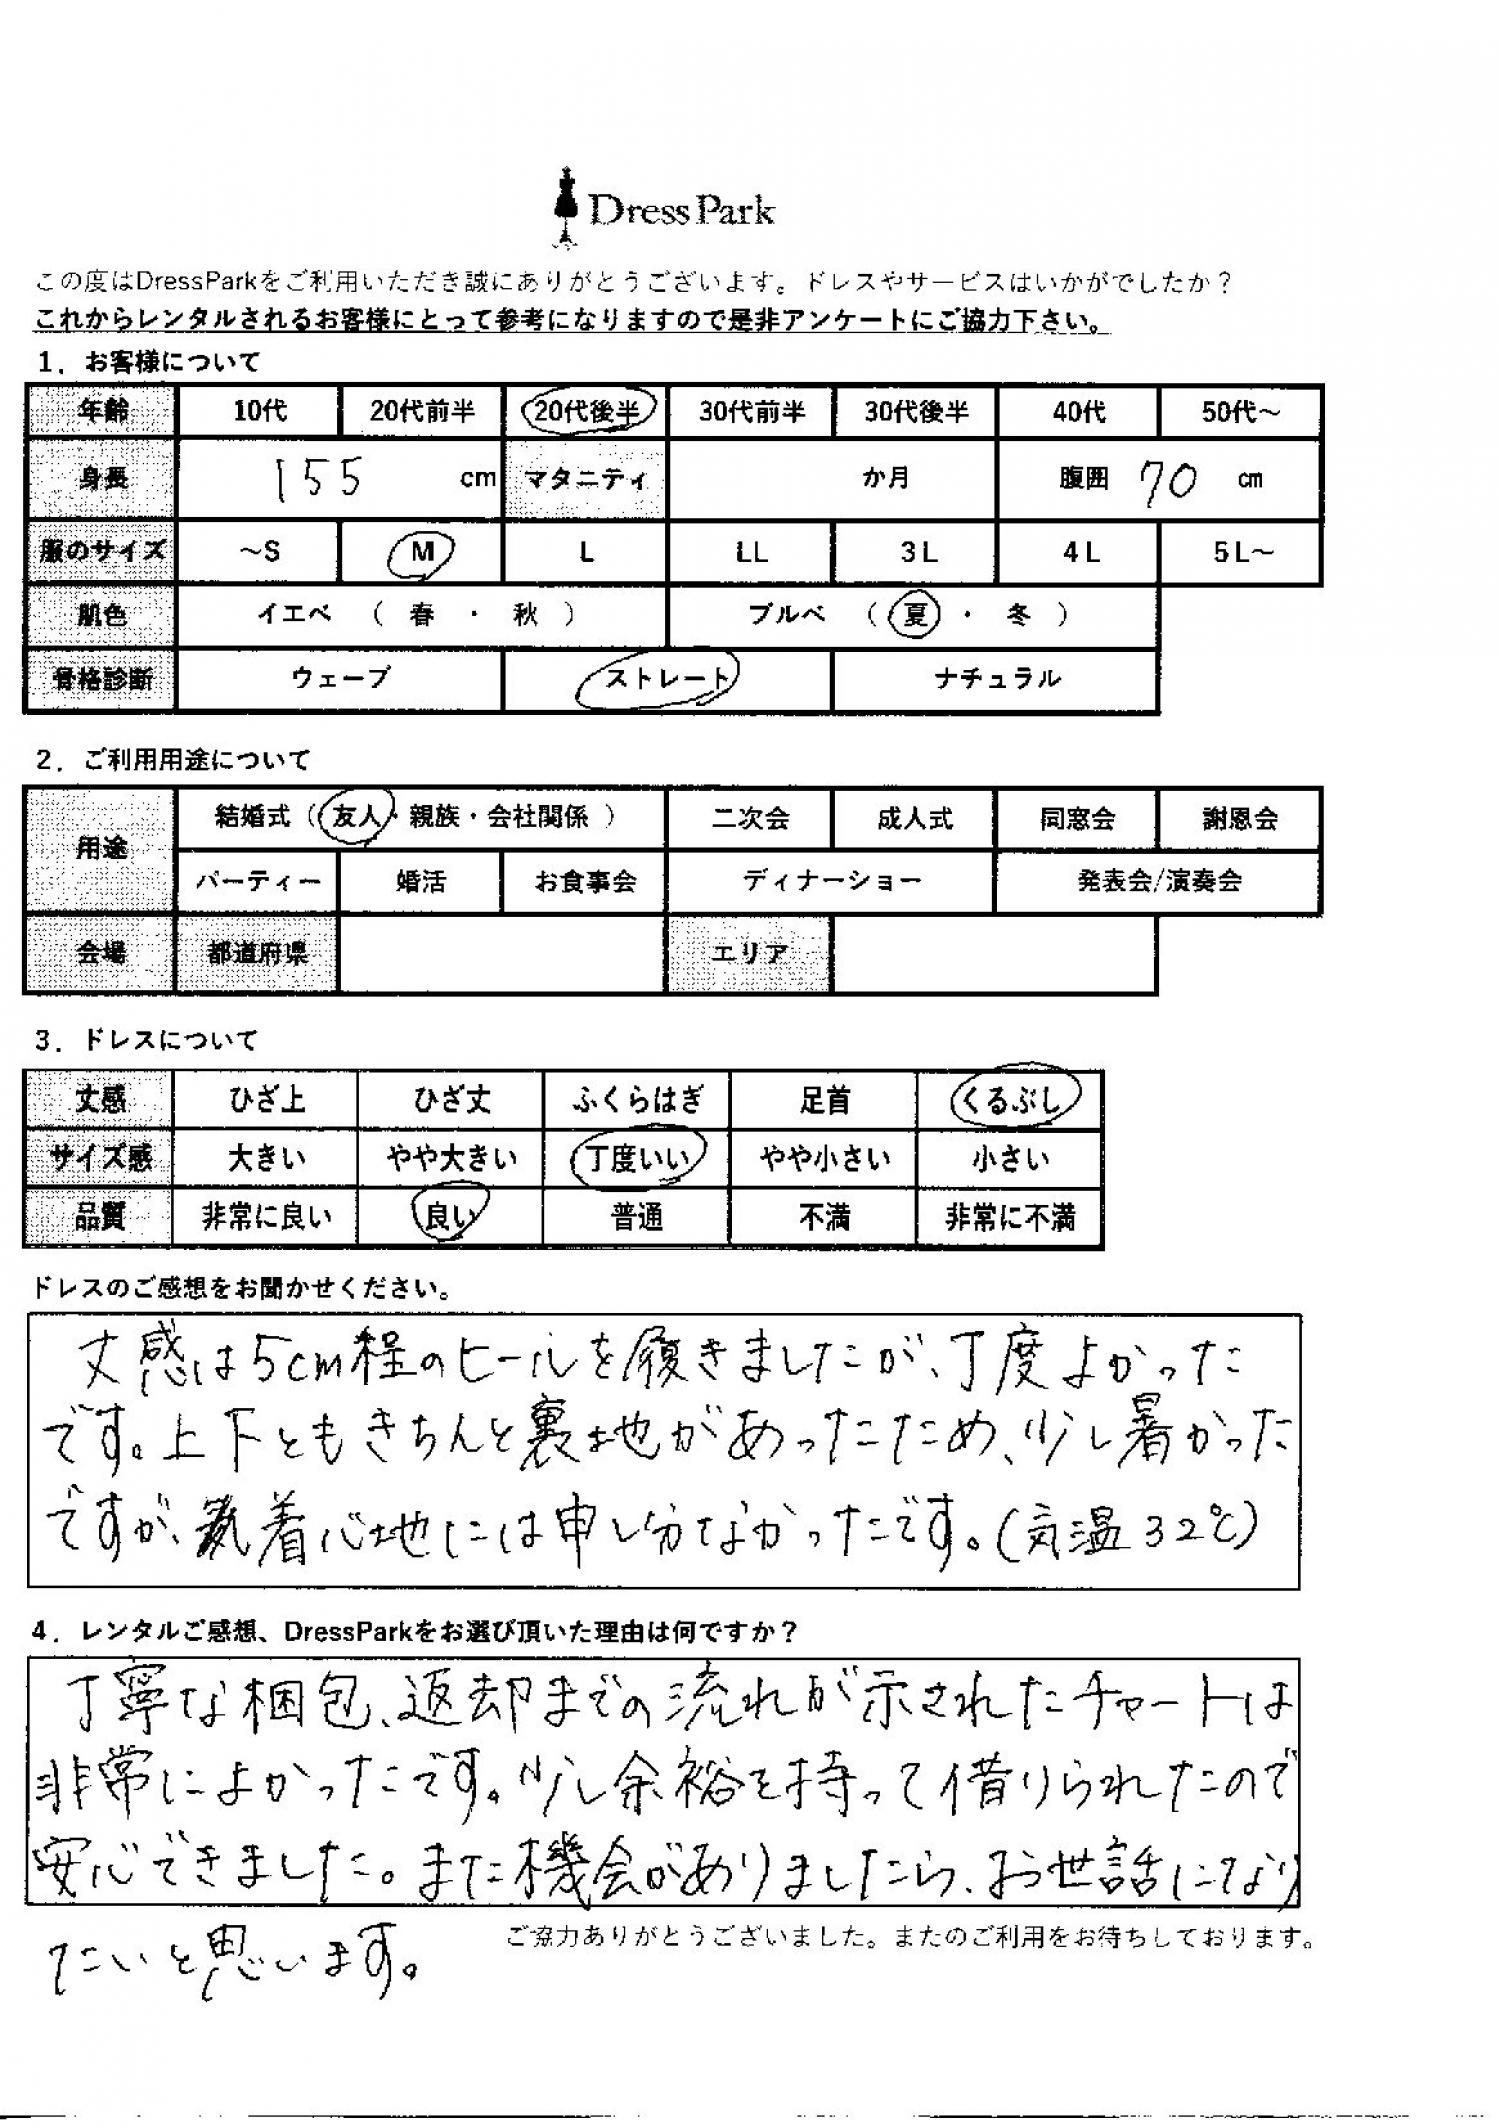 Dress Park
この度はDressParkをご利用いただき誠にありがとうございます。ドレスやサービスはいかがでしたか？
これからレンタルされるお客様にとって参考になりますので是非アンケートにご協力下さい。
1．お客様について
年齢 10代 20代前半 20代後半 30代前半 30代後半 40代 50代～
身長 155 cm マタニティ か月 腹囲 70 cm
服のサイズ ～S M L LL 3L 4L 5L～
肌色 イエベ （ 春 ・ 秋 ） ブルベ （ 夏 ・ 冬 ）
骨格診断 ウェーブ ストレート ナチュラル
2．ご利用用途について
用途 結婚式（ 友人・親族・会社関係 ） 二次会 成人式 同窓会 謝恩会
パーティー 婚活 お食事会 ディナーショー 発表会/演奏会
会場 都道府県 エリア
3．ドレスについて
丈感 ひざ上 ひざ丈 ふくらはぎ 足首 くるぶし
サイズ感 大きい やや大きい 丁度いい やや小さい 小さい
品質 非常に良い 良い 普通 不満 非常に不満
ドレスのご感想をお聞かせください。
丈感は5cm程のヒールを履きましたが、丁度よかった
です。上下ともきちんと裏地があったため、少し暑かった
ですが、着心地には申し分なかったです。(気温32℃)
4．レンタルご感想、DressParkをお選び頂いた理由は何ですか？
丁寧な梱包、返却までの流れが示されたチャートは
非常によかったです。少し余裕を持って借りられたので
安心できました。また機会がありましたら、お世話になり
たいと思います。
ご協力ありがとうございました。またのご利用をお待ちしております。